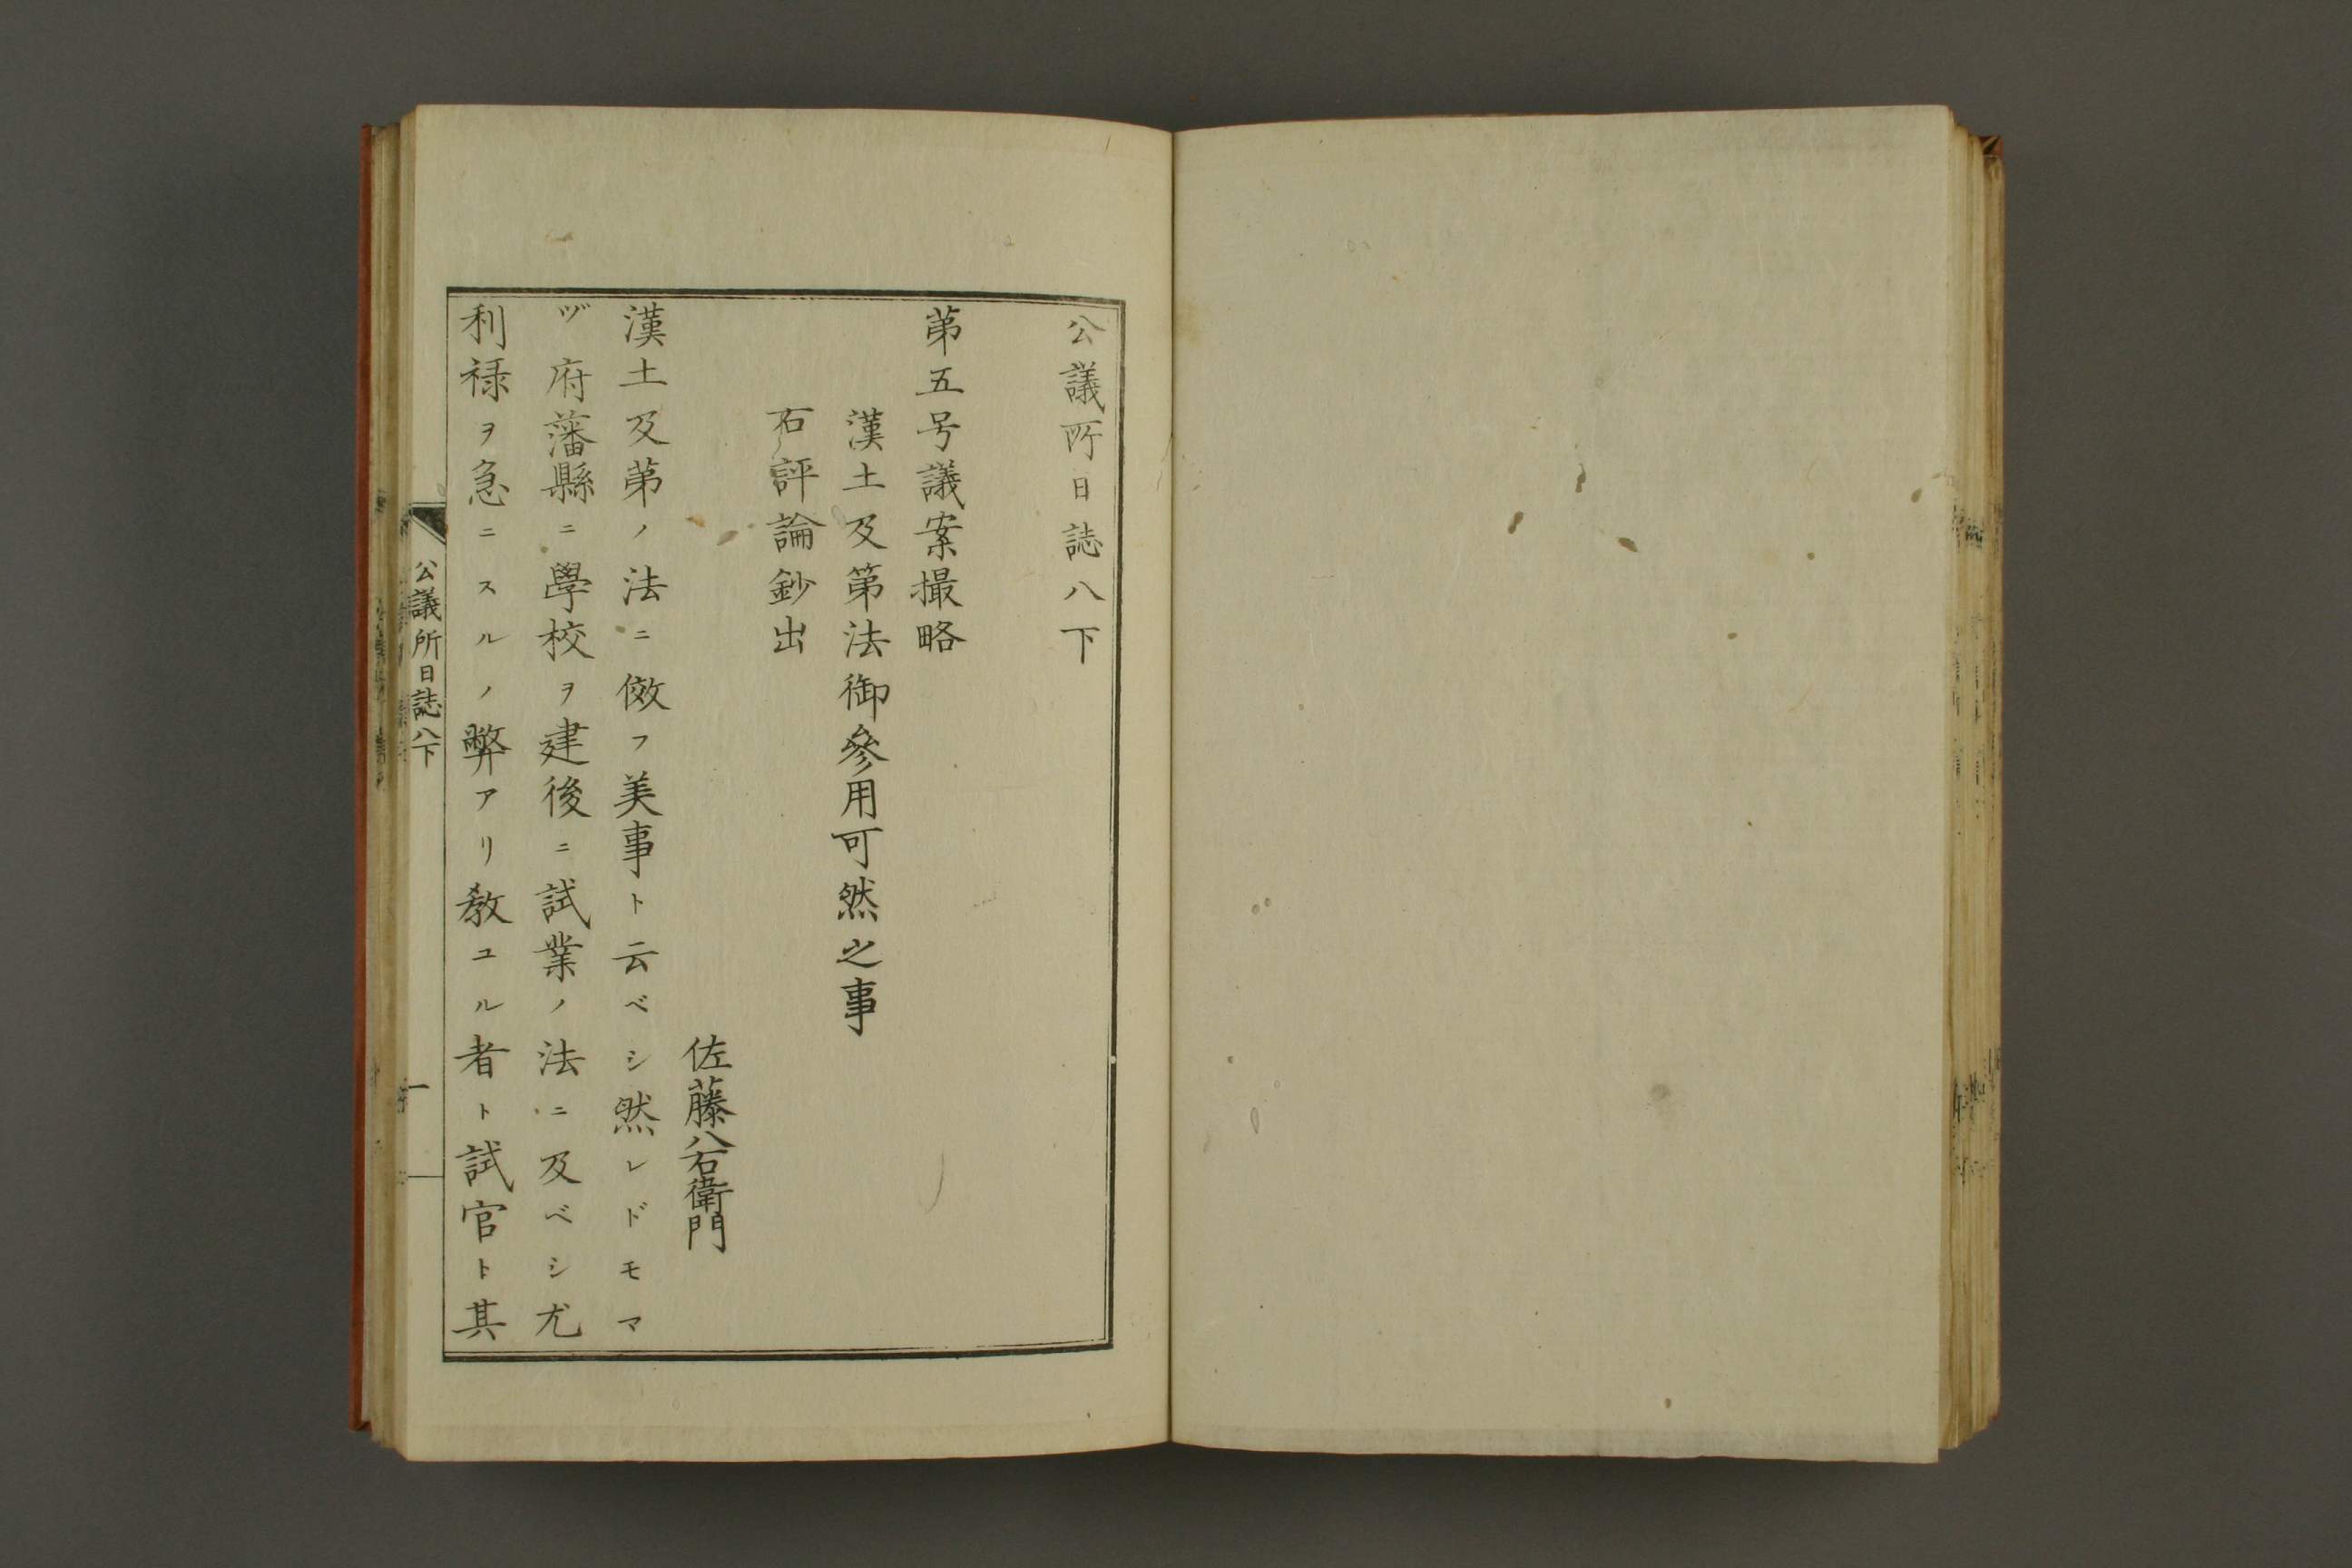 公議所日誌八下
第五号議案撮略
漢土及第法御參用可然之事
右評論鈔出
佐藤八右衛門
漢土及第ノ法ニ倣フ美事ト云ベシ然レドモマ
ヅ府藩縣ニ學校ヲ建後ニ試業ノ法ニ及ベシ尤
利祿ヲ急ニスルノ弊アリ教ユル者ト試官ト其
公議所日誌八下
一